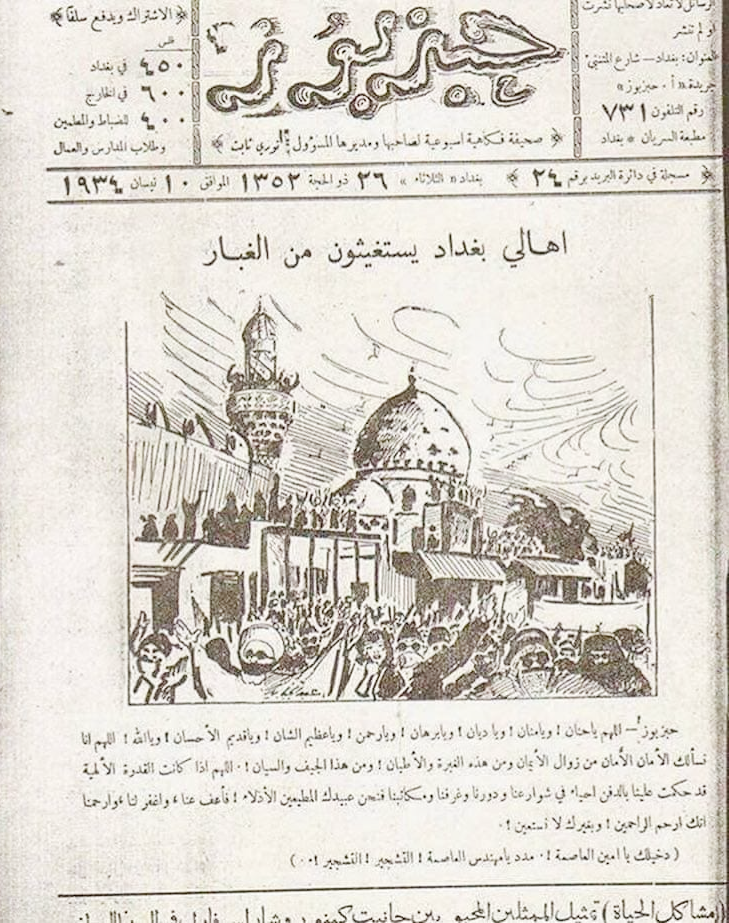 الاشتراك ويدفع سلفاً
فلس
٤٥٠ في بغداد
٦٠٠ في الخارج
٤٠٠ للضباط والمعلمين
وطلاب المدارس والعمال
حبزبوز
صحيفة فكاهية اسبوعية لصاحبها ومديرها المسؤول نوري ثابت
الرسائل لا تعاد لاصحابها نشرت
او لم تنشر
العنوان: بغداد — شارع المتنبي
جريدة « أ . حبزبوز »
رقم التلفون ٧٣١
مطبعة السريان * بغداد
مسجلة في دائرة البريد برقم ٢٤
بغداد « الثلاثاء » ٢٦ ذو الحجة ١٣٥٢ الموافق ١٠ نيسان ١٩٣٤
اهالي بغداد يستغيثون من الغبار
حبزبوز — اللهم ياحنان ! ويامنان ! ويا ديان ! ويابرهان ! ويارحمن ! وياعظيم الشان ! وياقديم الأحسان ! وياالله ! اللهم انا
نسألك الأمان الأمان من زوال الأيمان ومن هذه الغبرة والأطيان ! ومن هذا الجيف والسيان ! . اللهم اذا كانت القدرة الألهية
قد حكمت علينا بالدفن احياء في شوارعنا ودورنا وغرفنا ومكاتبنا فنحن عبيدك المطيعين الأذلاء ! فأعف عنا ، واغفر لنا ، وارحمنا
انك ارحم الراحمين ! وبغيرك لا نستعين ! .
( دخيلك يا امين العاصمة ! . مدد يامهندس العاصمة ! التشجير ! التشجير ! . . )
(( مشاكل الحياة ) تمثيل الممثلين المحبوبين جانيت كينور وشارلس فارل في